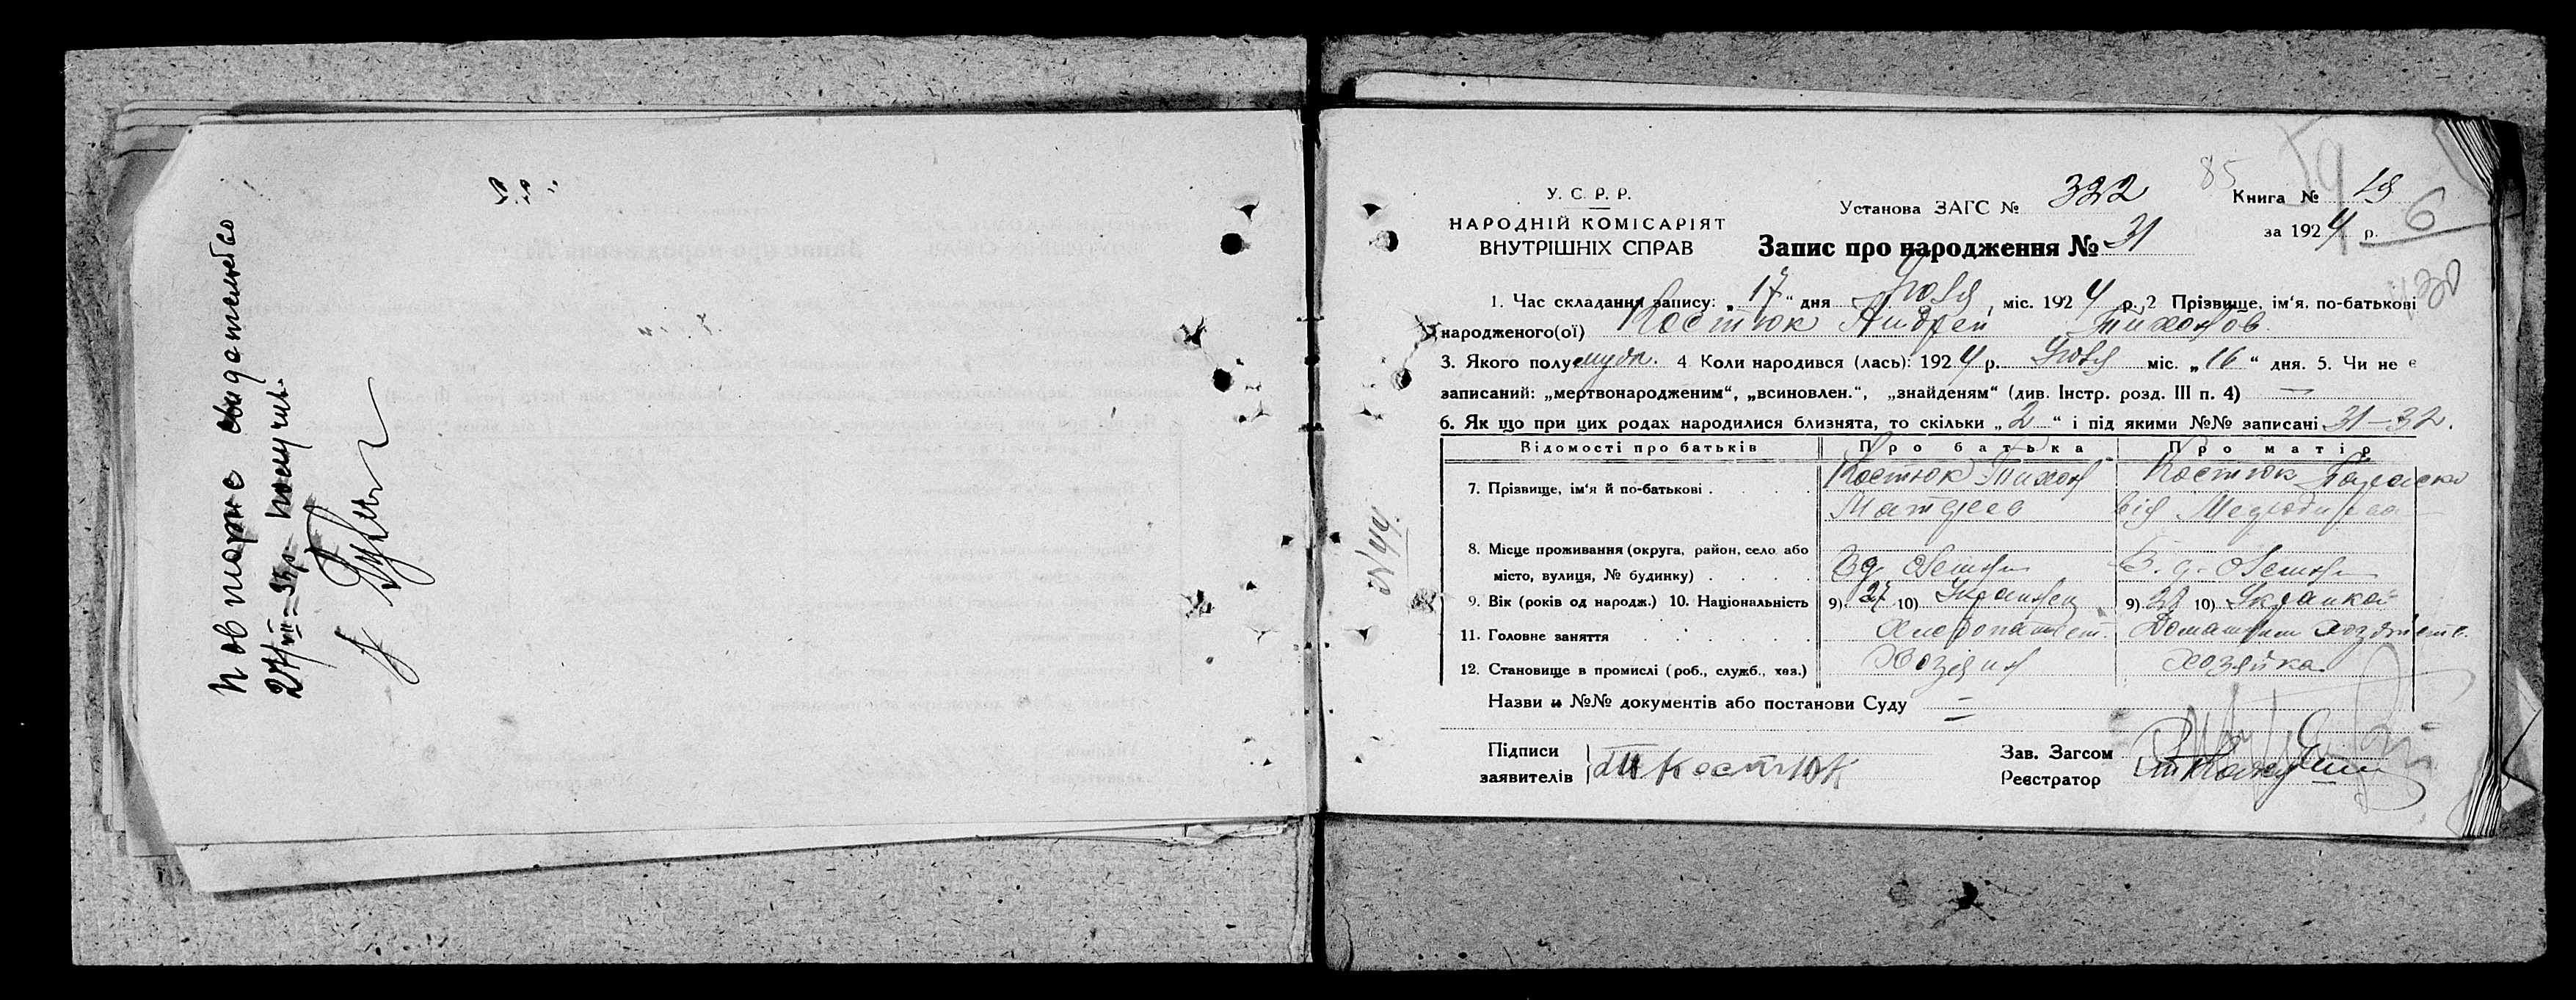 повторне свидательство
27/VII-35р. получив.
У. С. Р. Р.
НАРОДНІЙ КОМІСАРІЯТ
ВНУТРІШНІХ СПРАВ
Установа ЗАГС № 322
85
Книга № 19
за 1924 р.
6
Запис про народження № 31
1. Час складання запису: „17“ дня міс. 1924 р. 2 Прізвище, ім‘я, по-батькові
народженого(ої) Костюк Андрей Тихонов.
3. Якого полу мужн. 4 Коли народився (лась): 1924 р. міс. „16“ дня. 5. Чи не є
записаний: „мертвонародженим“, „всиновлен.“, „знайденям“ (див. Інстр. розд. III п. 4) —
6. Як що при цих родах народилися близнята, то скільки „2“ і під якими №№ записані 31–32.
Відомості про батьків Про батька Про матір
7. Прізвище, ім‘я й по-батькові . Костюк Тихон Костюк
Матфеев
№44
8. Місце проживання (округа, район, село або
місто, вулиця, № будинку)
9. Вік (років од народж.) 10. Національність 9) 27 10) 9) 10)
11. Головне заняття Домашнем
12. Становище в промислі (роб., служб., хаз.) Хозяин хозяйка
Назви и №№ документів або постанови Суду =
Підписи
заявителів Костюк
Зав. Загсом
Реєстратор